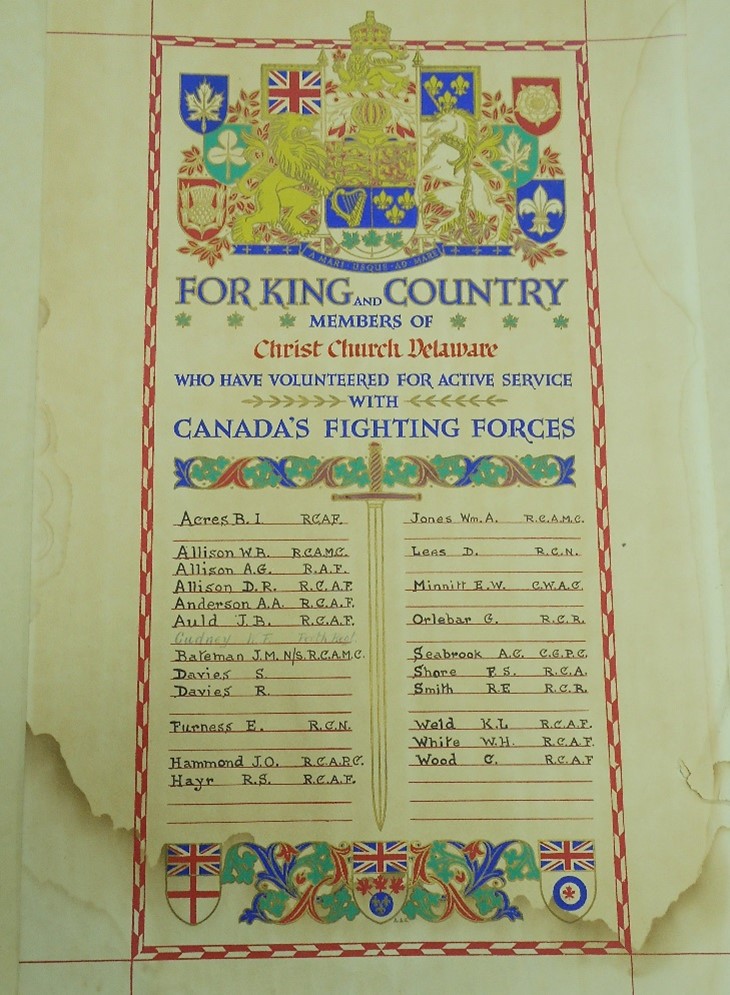 A MARI USQUE AD MARE
FOR KING AND COUNTRY
MEMBERS OF
Christ Church Delaware
WHO HAVE VOLUNTEERED FOR ACTIVE SERVICE
WITH
CANADA'S FIGHTING FORCES
Acres B. I. R.C.A.F.
Allison W.B. R.C.A.M.C.
Allison A.G. R.A.F.
Allison D.R. R.C.A.F.
Anderson A.A. R.C.A.F.
Auld J.B. R.C.A.F.
Bateman J.M. N/S. R.C.A.M.C.
Davies S.
Davies R.
Furness E. R.C.N.
Hammond J.O. R.C.A.P.C.
Hayr R.S. R.C.A.F.
Jones Wm. A. R.C.A.M.C.
Lees D. R.C.N.
Minnitt E.W. C.W.A.C.
Orlebar G. R.C.R.
Seabrook A.C. C.G.P.C.
Shore F.S. R.C.A.
Smith R.E R.C.R.
Weld K.L R.C.A.F.
White W.H. R.C.A.F.
Wood C. R.C.A.F